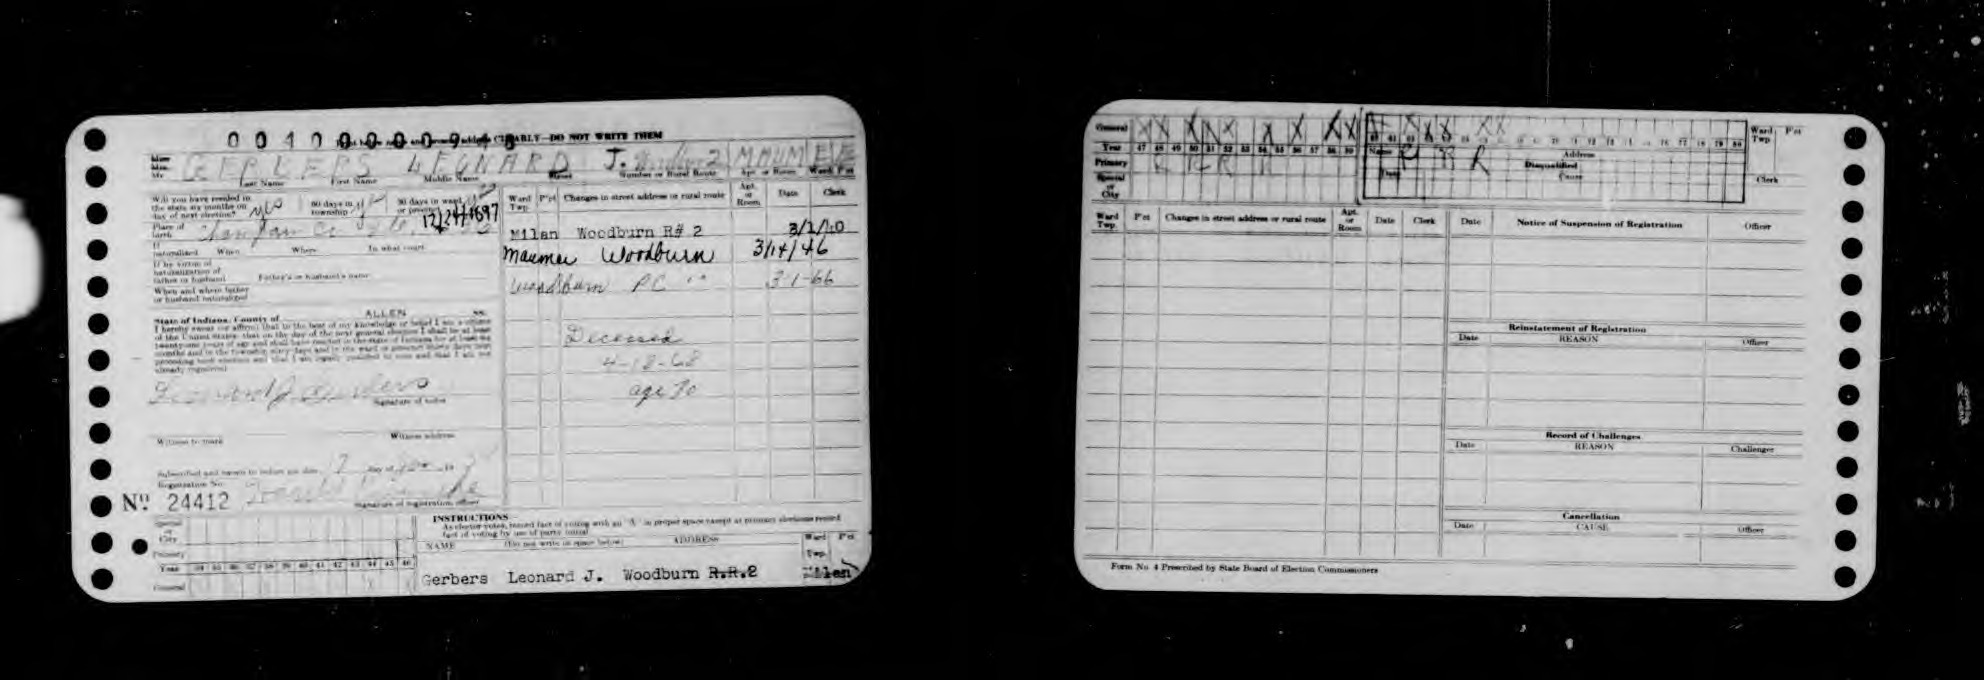 0 0 4 0 0 0 0 0 9
CLEARLY—DO NOT WRITE THEM
Miss
Mrs.
Mr. GERBERS LEONARD J. Woodburn 2 MAUM
Last Name First Name Middle Name Street Number or Rural Route Apt. or Room Ward Pct
Will you have resided in
the state six months on
day of next election? yes
60 days in
township? yes
30 days in ward
or precinct?
Place of
birth 12/24/1897
If
naturalized When Where In what court
If by virtue of
naturalization of
father or husband Father's or husband's name
When and where father
or husband naturalized
State of Indiana, County of ALLEN SS.
I hereby swear (or affirm) that to the best of my knowledge or belief I am a citizen
of the United States; that on the day of the next general election I shall be at least
twenty-one years of age and shall have resided in the state of Indiana for at least six
months and in the township sixty days and in the ward or precinct thirty days next
preceding such election and that I am legally qualified to vote and that I am not
already registered.
Leonard J. Gerbers
Signature of voter
Witness to mark Witness address
Subscribed and sworn to before me this 7 day of 19
Registration No.
No. 24412
Signature of registration officer
Ward
Twp. P'ct Changes in street address or rural route Apt.
or
Room Date Clerk
Milan Woodburn R# 2
Maumee Woodburn 3/14/46
Woodburn PC " 3-1-66
Deceased
4-18-68
age 70
Special
or
City
Primary
Year 34 35 36 37 38 39 40 41 42 43 44 45 46
General
INSTRUCTIONS
As elector votes, record fact of voting with an "X" in proper space except at primary elections record
fact of voting by use of party initial
NAME (Do not write in space below) ADDRESS Ward
Twp. P'ct
Gerbers Leonard J. Woodburn R.R.2 Milan
General
Year 47 48 49 50 51 52 53 54 55 56 57 58 59
Primary R R R
Special
or
City
Name Address
Date Disqualified
Cause
Ward
Twp P'ct
Clerk
Ward
Twp. P'ct Changes in street address or rural route Apt.
or
Room Date Clerk
Date Notice of Suspension of Registration Officer
Reinstatement of Registration
Date REASON Officer
Record of Challenges
Date REASON Challenger
Cancellation
Date CAUSE Officer
Form No 4 Prescribed by State Board of Election Commissioners